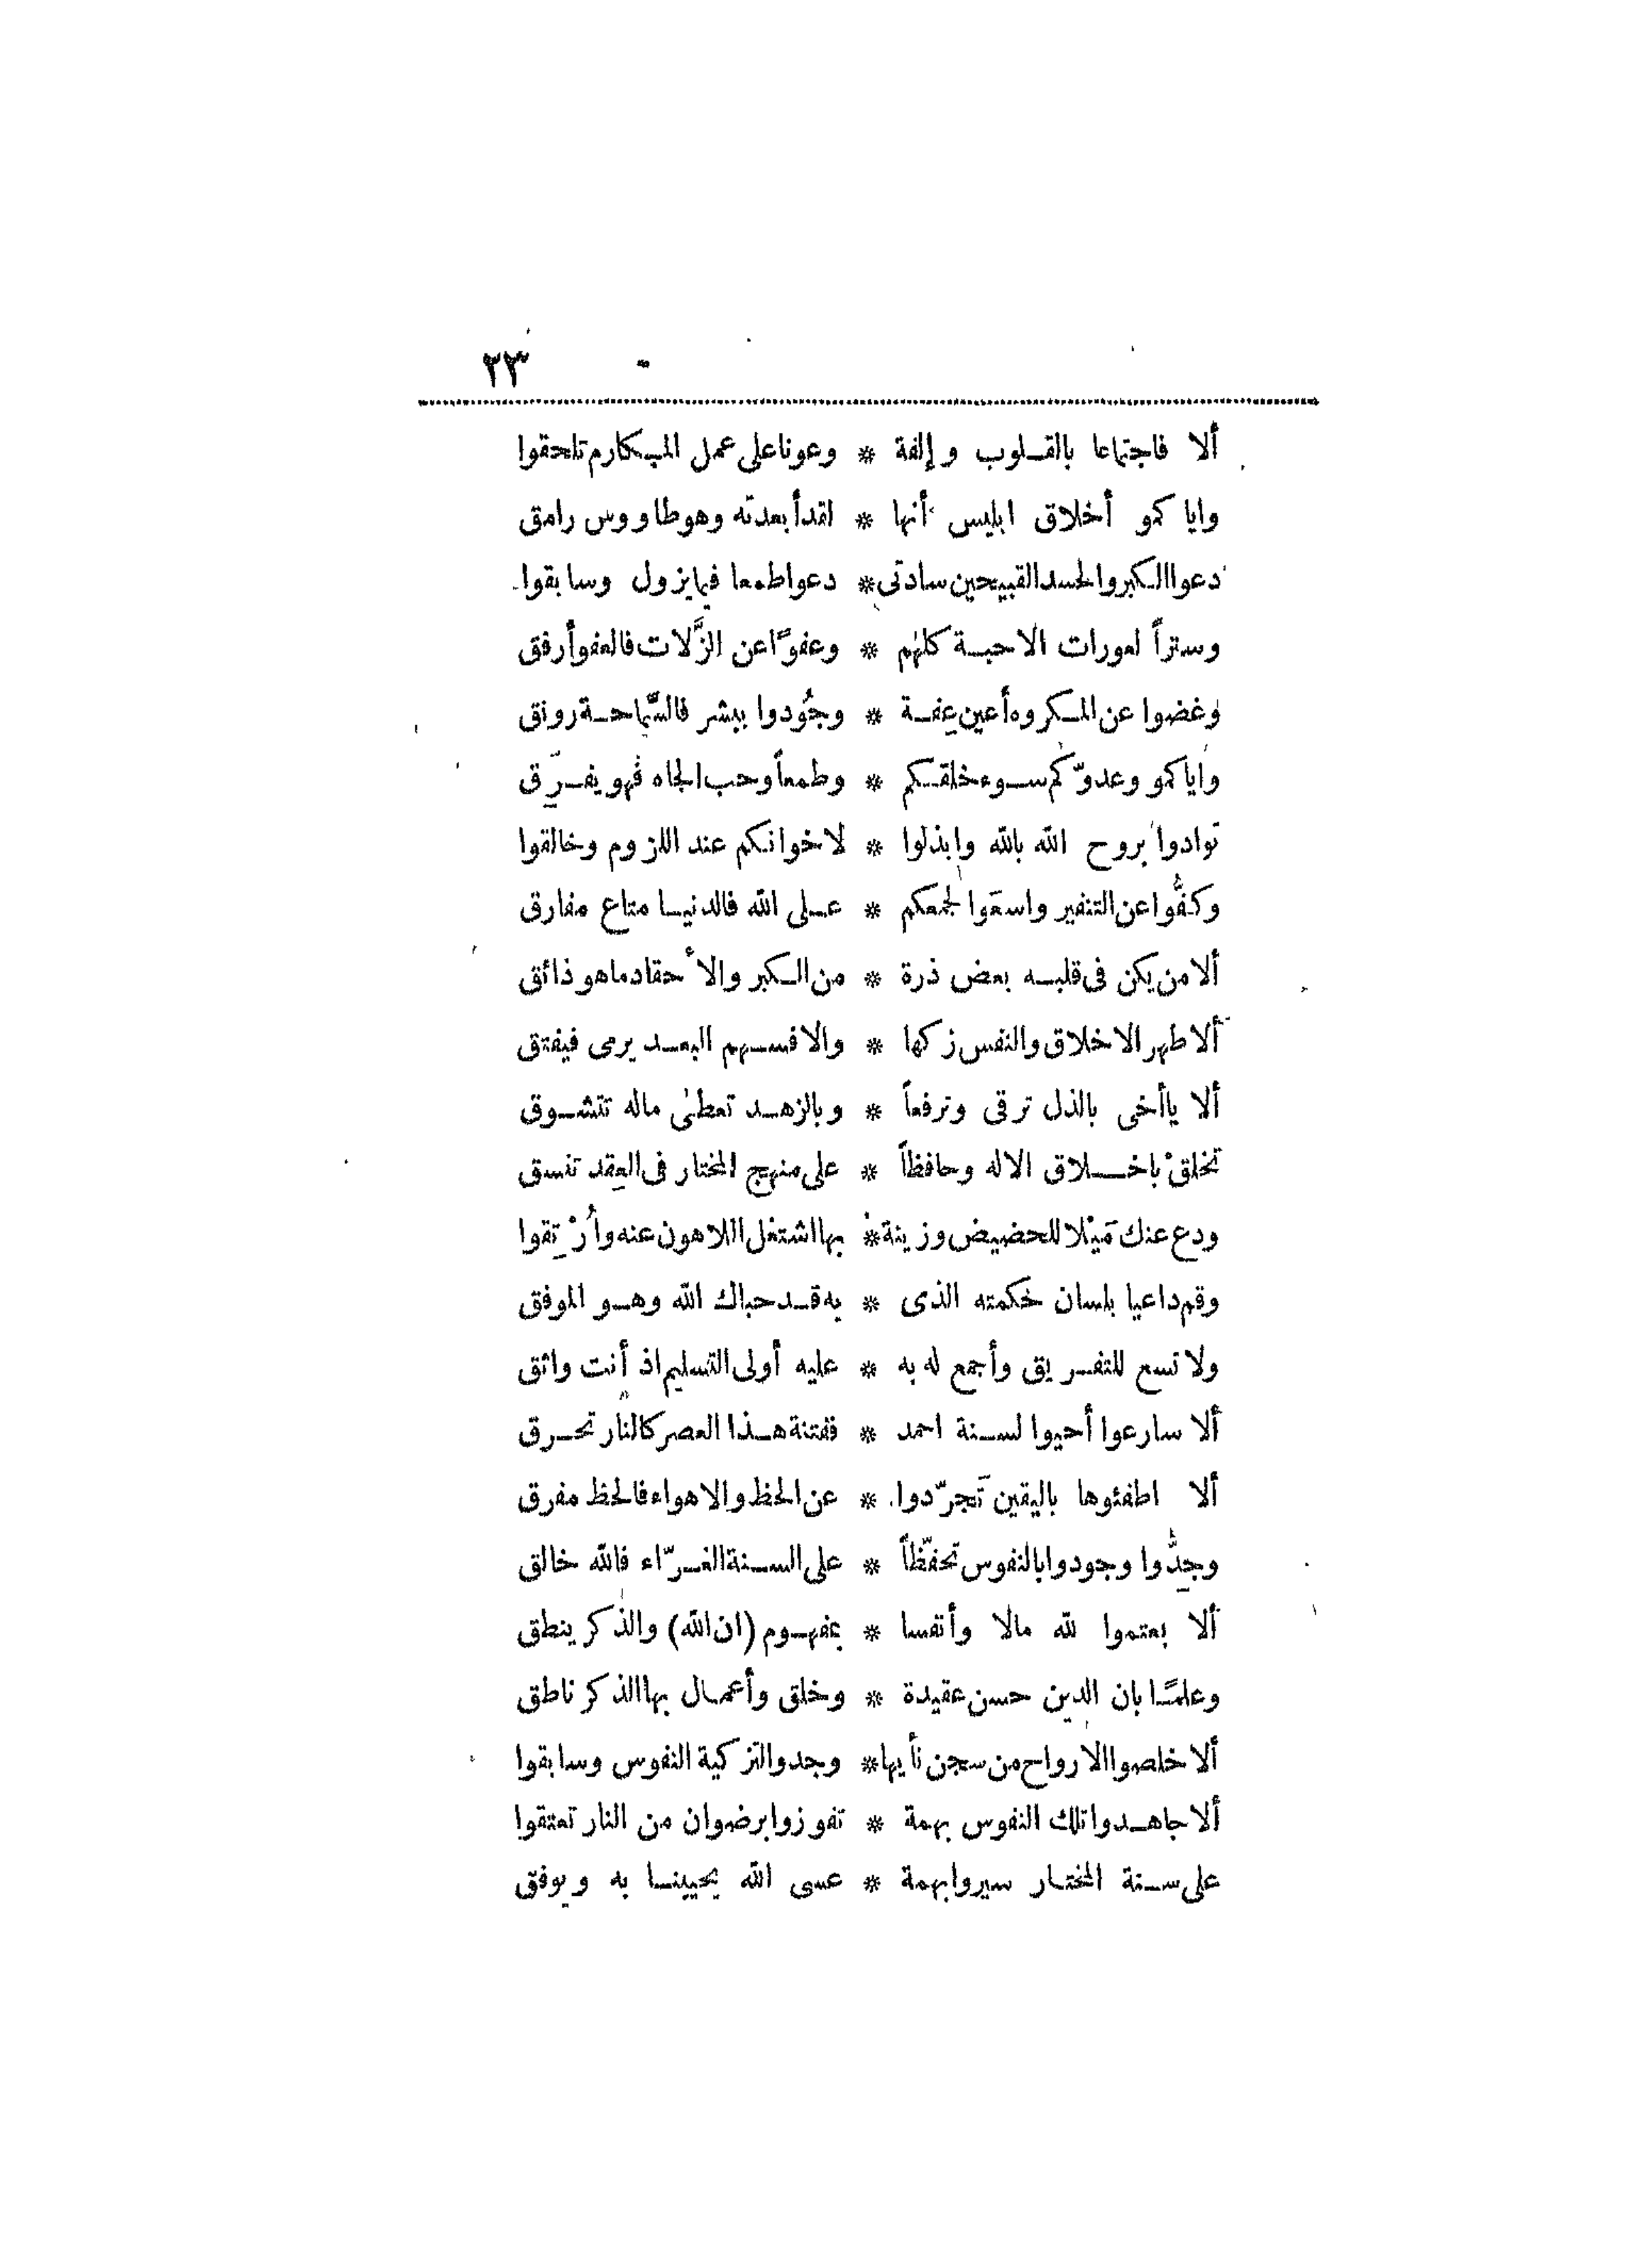 ٢٣
ألا فاجتماعا بالقلوب وإلفة * وعونا على عمل المكارم تلحقوا
وايا كمو أخلاق ابليس أنها * لقد أبعدته وهو طاووس رامق
دعوا الكبر والحسد القبيحين سادتى * دعوا طمعا فيما يزول وسابقوا
وستراً لعورات الاحبة كلهم * وعفوًا عن الزَّلات فالعفو أرفق
وغضوا عن المكروه أعين عِفة * وجُودوا ببشر فالسَّماحة رونق
وايا كمو وعدوّكم سوء خلقكم * وطمعاً وحب الجاه فهو يفرّق
توادوا بروح الله بالله وابذلوا * لاخوانكم عند اللزوم وخالقوا
وكفُّوا عن التنفير واسعَوا لجمعكم * على الله فالدنيا متاع مفارق
ألا من يكن فى قلبه بعض ذرة * من الكبر والأحقاد ما هو ذائق
ألا طهر الاخلاق والنفس زكها * والا فسهم البعد يرمى فيفتق
ألا يا أخى بالذل ترقى وترفعاً * وبالزهد تعطى ماله تتشوق
تخلقْ باخلاق الاله وحافظاً * على منهج المختار فى العِقد تنسق
ودع عنك مَيْلا للحضيض وزينة * بها اشتغل اللاهون عنه وأُرْتِقوا
وقم داعيا بلسان حكمته الذى * به قد حباك الله وهو الموفق
ولا تسع للتفريق وأجمع له به * عليه أولى التسليم اذ أنت واثق
ألا سارعوا أحيوا لسنة احمد * ففتنة هذا العصر كالنار تحرق
ألا اطفئوها باليقين تَجرّدوا * عن الحظ والاهواء فالحظ مفرق
وجِدُّوا وجودوا بالنفوس تحفّظاً * على السنة الغرّاء فالله خالق
ألا بعتموا لله مالا وأنفسا * بمفهوم (ان الله) والذكر ينطق
وعلمًا بان الدين حسن عقيدة * وخلق وأعمال بها الذكر ناطق
ألا خلصوا الارواح من سجن نأيها * وجدوا لتزكية النفوس وسابقوا
ألا جاهدوا تلك النفوس بهمة * تفوزوا برضوان من النار تعتقوا
على سنة المختار سيروا بهمة * عسى الله يحيينا به ويوفق